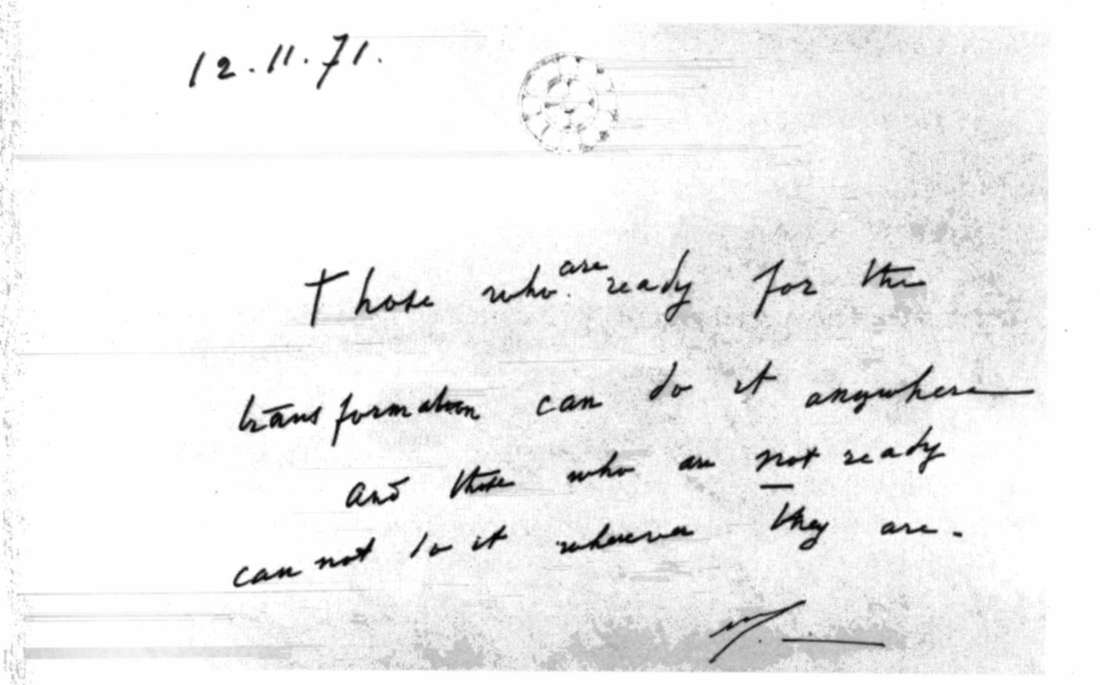 12.11.71.
Those who are ready for the
transformation can do it anywhere
and those who are not ready
can not do it wherever they are.